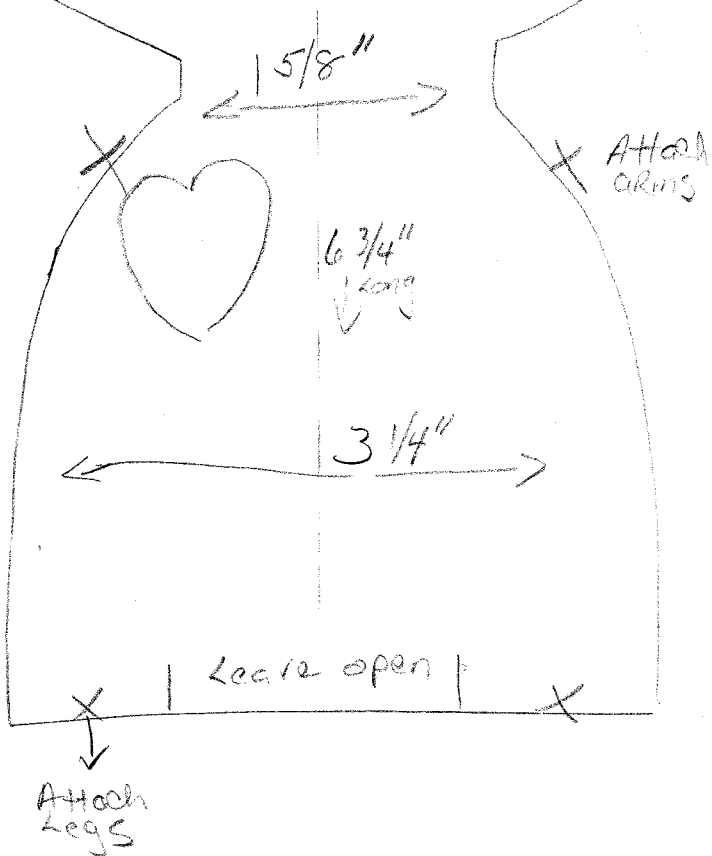 1 5/8"
Attach
arms
6 3/4"
Long
3 1/4"
Leave open
Attach
Legs